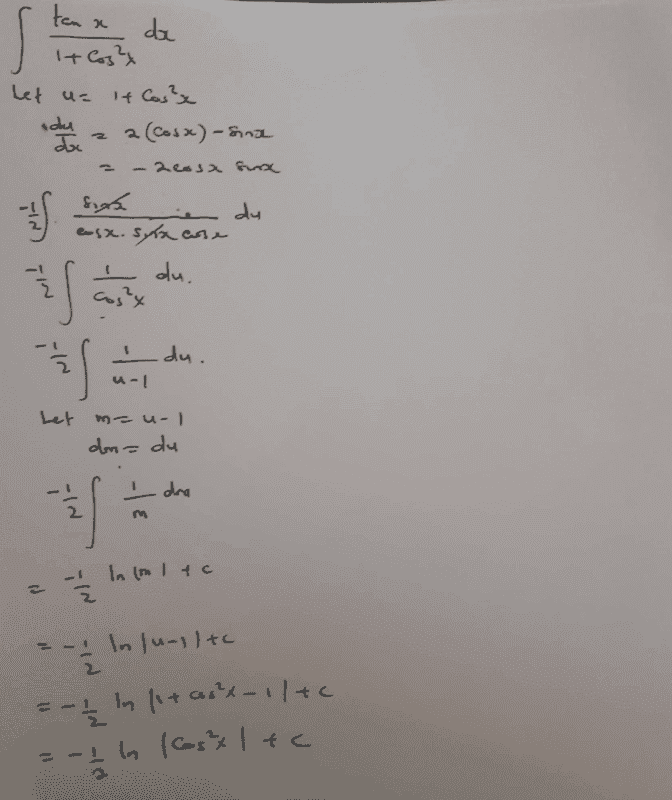 ∫ tan x / 1 + Cos²x dx
Let u = 1 + Cos²x
du/dx = 2(Cosx) - sinx
= - 2cosx sinx
-1/2 ∫ sinx / cosx. sinx cosx du
-1/2 ∫ 1 / Cos²x du.
-1/2 ∫ 1 / u-1 du.
Let m = u-1
dm = du
-1/2 ∫ 1 / m dm
= -1/2 ln |m| + c
= -1/2 ln |u-1| + c
= -1/2 ln |1 + cos²x - 1| + c
= -1/2 ln |Cos²x| + c